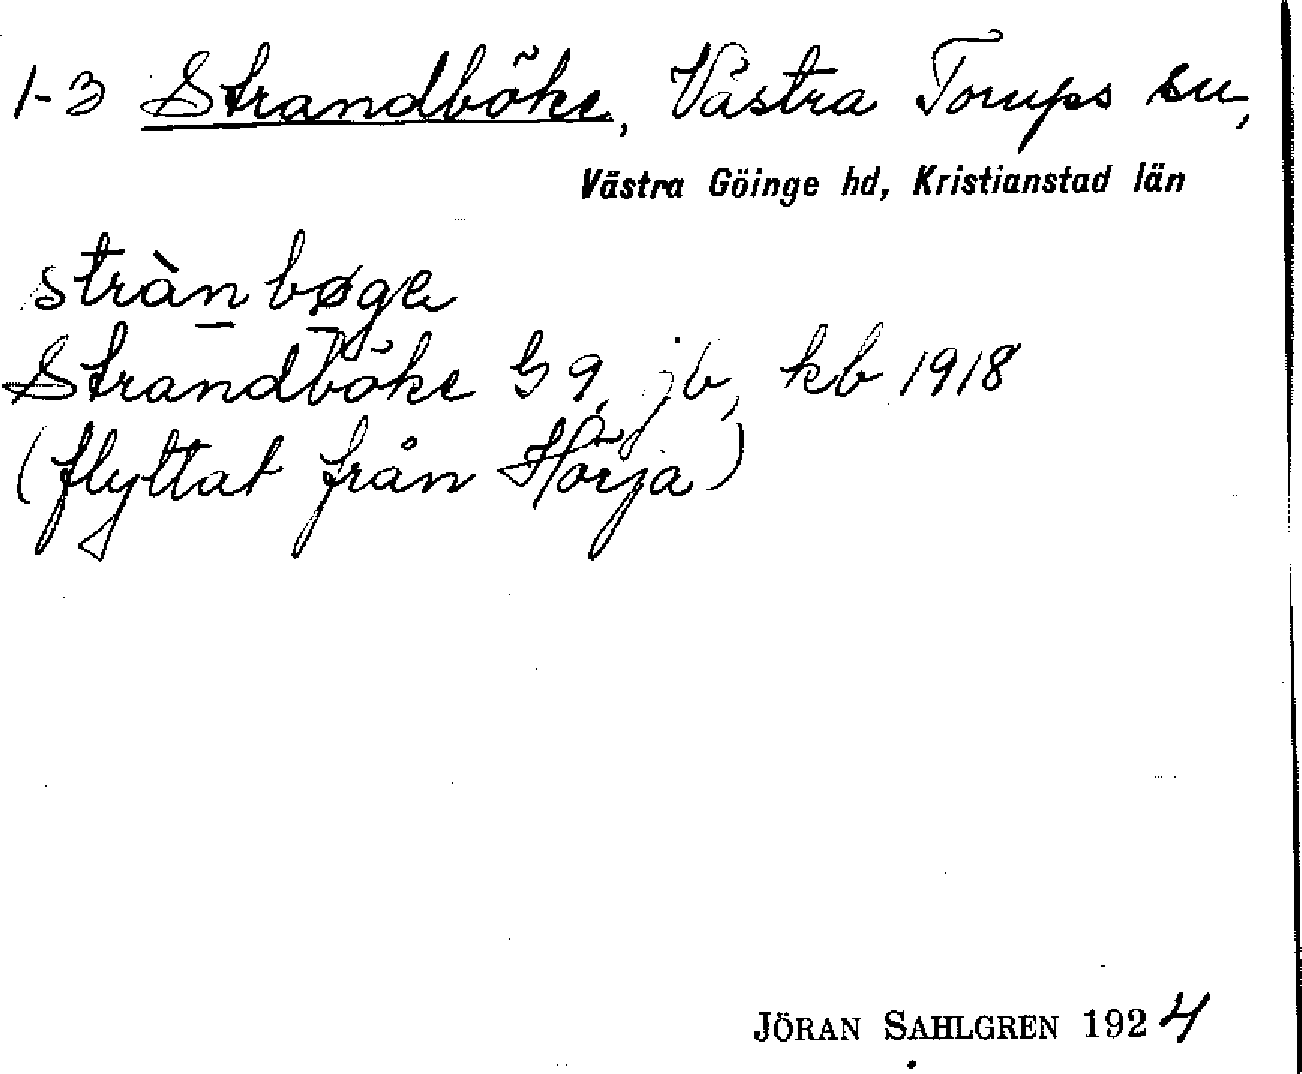 1-3 Strandböke, Västra Torups sn,
Västra Göinge hd, Kristianstad län
stràn bøge
Strandböke G9, jb, kb 1918
(flyttat från Hörja)
JÖRAN SAHLGREN 1924